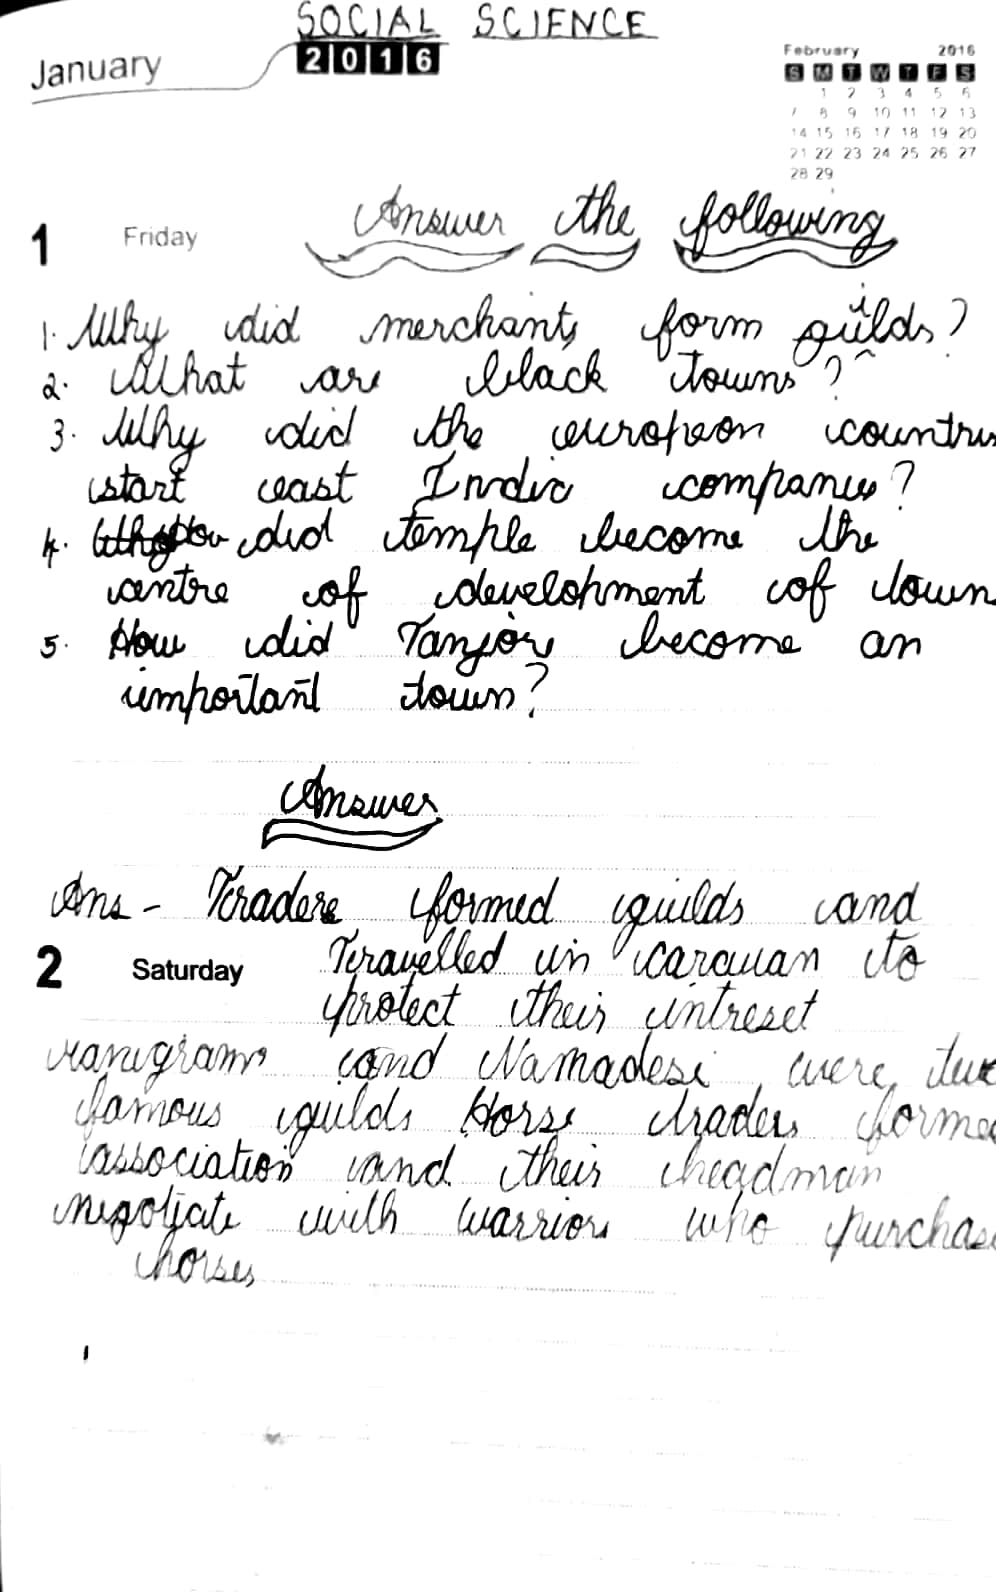 SOCIAL SCIENCE
January 2016
February 2016
S M T W T F S
1 2 3 4 5 6
7 8 9 10 11 12 13
14 15 16 17 18 19 20
21 22 23 24 25 26 27
28 29
1 Friday
Answer the following
1. Why did merchants form guilds?
2. What are black towns?
3. Why did the europeon countries
start east India companies?
4. How did temple become the
centre of development of town
5. How did Tanjore become an
important town?
Answer
Ans - Traders formed guilds and
2 Saturday Travelled in caravan to
protect their intreset
manigrams and Namadesi were two
famous guilds Horse traders formed
association and their headman
negotiate with warriors who purchase
horses